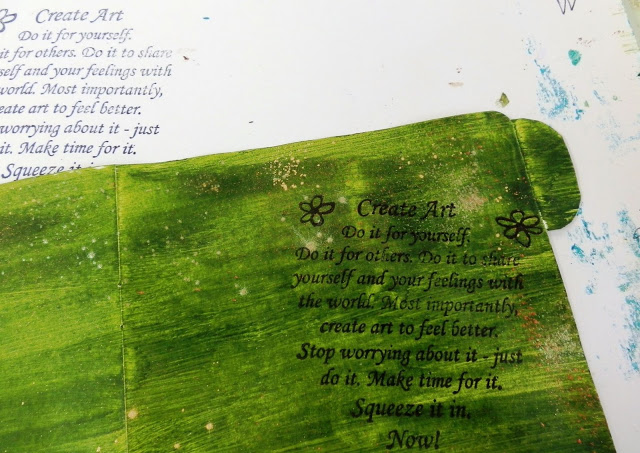 Create Art
Do it for yourself.
it for others. Do it to share
self and your feelings with
world. Most importantly,
eate art to feel better.
worrying about it - just
it. Make time for it.
Squeeze it in.
Create Art
Do it for yourself.
Do it for others. Do it to share
yourself and your feelings with
the world. Most importantly,
create art to feel better.
Stop worrying about it - just
do it. Make time for it.
Squeeze it in.
Now!